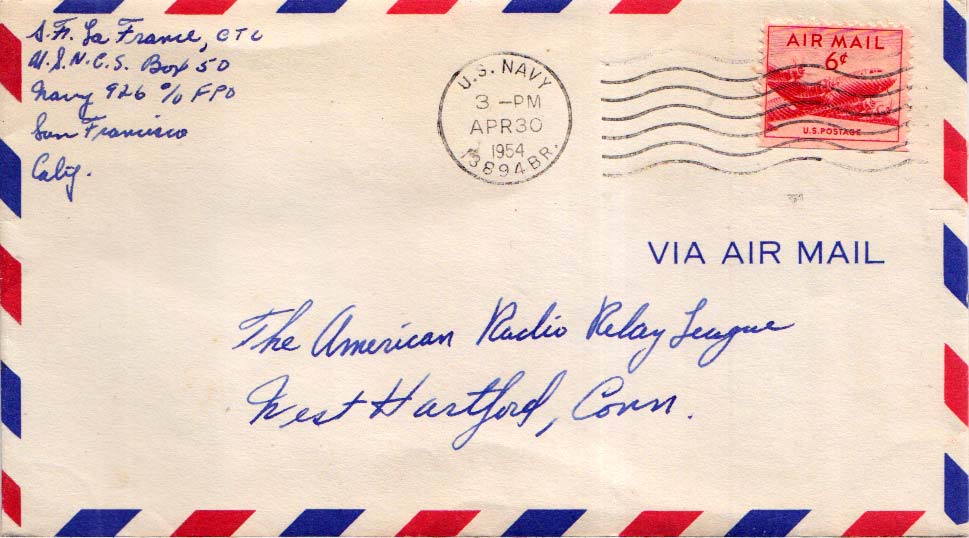 S. F. La France, CTC
U.S.N.C.S. Box 50
Navy 926 c/o FPO
San Francisco
Calif.
U.S. NAVY
3 -PM
APR30
1954
13894 BR.
AIR MAIL
6¢
U.S. POSTAGE
VIA AIR MAIL
The American Radio Relay League
West Hartford, Conn.